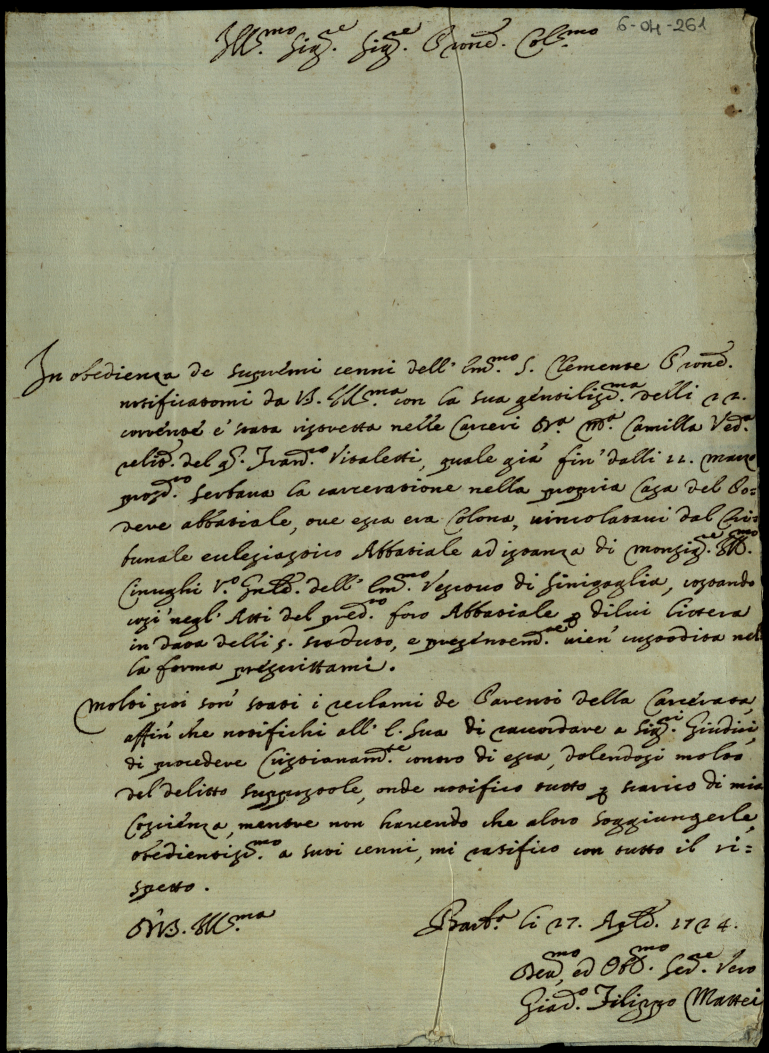 6-04-261
Ill.mo Sig.re Sig.re Prone. Col.mo
In obedienza de supremi cenni dell' Em.mo S. Clemente Prone.
notificatomi da V.S. Ill.ma con la sua gentiliss.ma delli 22.
corrente è stata ristretta nelle Carceri D.a M.a Camilla Ved.a
relit. del q. Fran.co Vitaletti, quale già fin' dalli 11. marzo
pross.o serbava la carceratione nella propria Casa del Po-
dere abbatiale, ove essa era Colona, vincolatavi dal Tri=
bunale eclesiastico Abbatiale ad istanza di monsig.re Ill.mo
Cinughi V.o Gnle. dell' Em.mo Vescovo di Sinigaglia, costando
così negl' Atti del pred.o foro Abbatiale p di lui lettera
in data delli 5. scaduto, e presentem.te vien' custodita nel
la forma prescrittami.
Molti poi son' stati i reclami de Parenti della Carcerata,
affin che notifichi all' E. Sua di raccordare a Sig.ri Giudici,
di procedere Cristianam.te contro di essa, dolendosi molto
del delitto supponole, onde notifico tutto p scarico di mia
Coscienza, mentre non havendo che altro soggiungerle,
obedientiss.mo a suoi cenni, mi ratifico con tutto il ri=
spetto.
D.V.S. Ill.ma
Barb.a li 27. Aple. 1724.
Dev.mo, ed Obl.mo Ser.re Vero
Giac.o Filippo Mattei